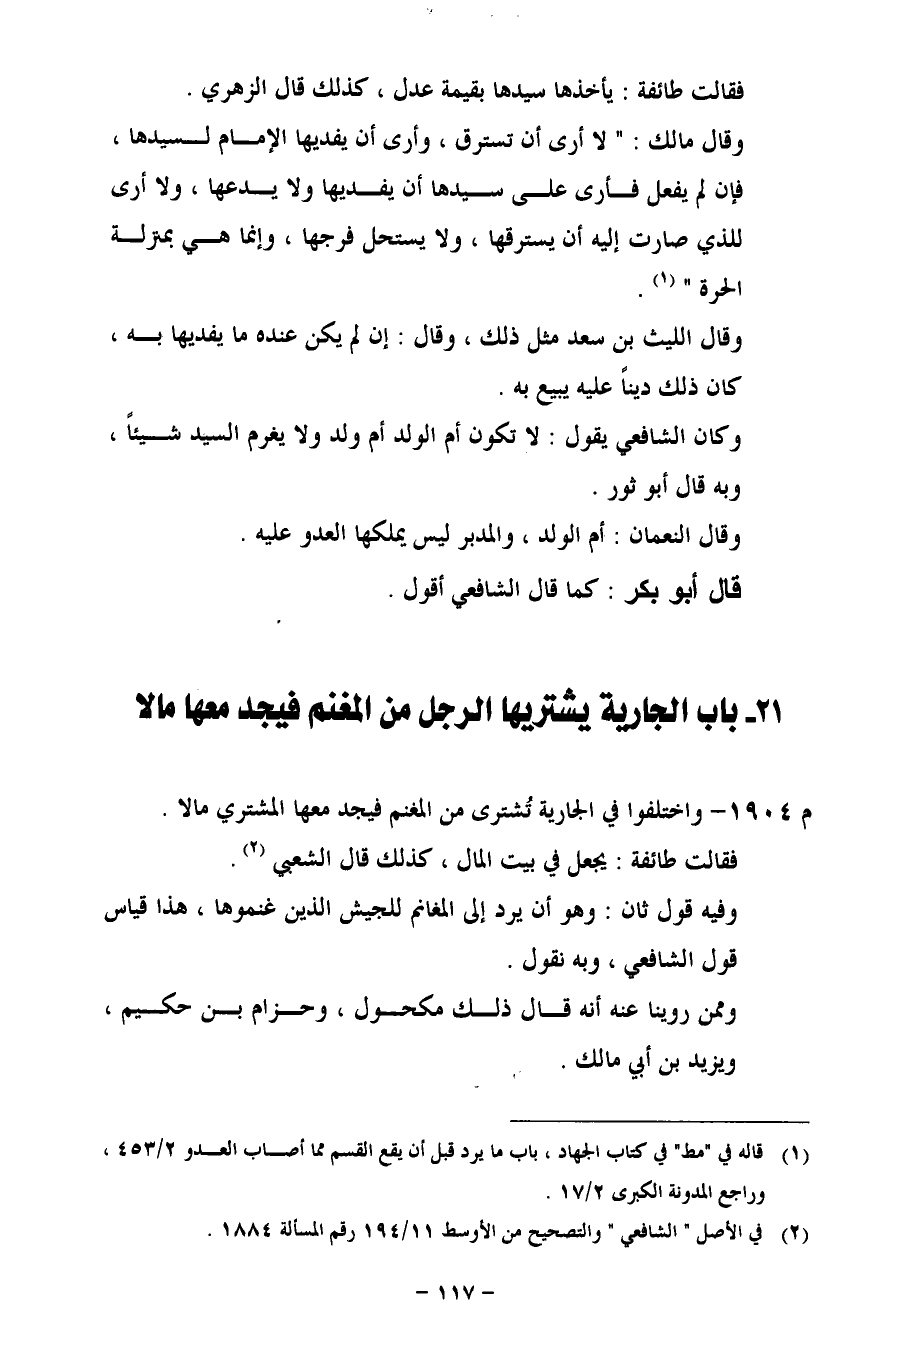 فقالت طائفة : يأخذها سيدها بقيمة عدل ، كذلك قال الزهري .
وقال مالك : " لا أرى أن تسترق ، وأرى أن يفديها الإمام لسيدها ،
فإن لم يفعل فأرى على سيدها أن يفديها ولا يدعها ، ولا أرى
للذي صارت إليه أن يسترقها ، ولا يستحل فرجها ، وإنما هي بمنزلة
الحرة " (١) .
وقال الليث بن سعد مثل ذلك ، وقال : إن لم يكن عنده ما يفديها به ،
كان ذلك ديناً عليه يبيع به .
وكان الشافعي يقول : لا تكون أم الولد أم ولد ولا يغرم السيد شيئاً ،
وبه قال أبو ثور .
وقال النعمان : أم الولد ، والمدبر ليس يملكها العدو عليه .
قال أبو بكر : كما قال الشافعي أقول .
٢١ـ باب الجارية يشتريها الرجل من المغنم فيجد معها مالا
م ١٩٠٤– واختلفوا في الجارية تُشترى من المغنم فيجد معها المشتري مالا .
فقالت طائفة : يجعل في بيت المال ، كذلك قال الشعبي (٢) .
وفيه قول ثان : وهو أن يرد إلى المغانم للجيش الذين غنموها ، هذا قياس
قول الشافعي ، وبه نقول .
وممن روينا عنه أنه قال ذلك مكحول ، وحزام بن حكيم ،
ويزيد بن أبي مالك .
(١) قاله في "مط" في كتاب الجهاد ، باب ما يرد قبل أن يقع القسم مما أصاب العدو ٤٥٣/٢ ،
وراجع المدونة الكبرى ١٧/٢ .
(٢) في الأصل " الشافعي " والتصحيح من الأوسط ١٩٤/١١ رقم المسألة ١٨٨٤ .
– ١١٧ –